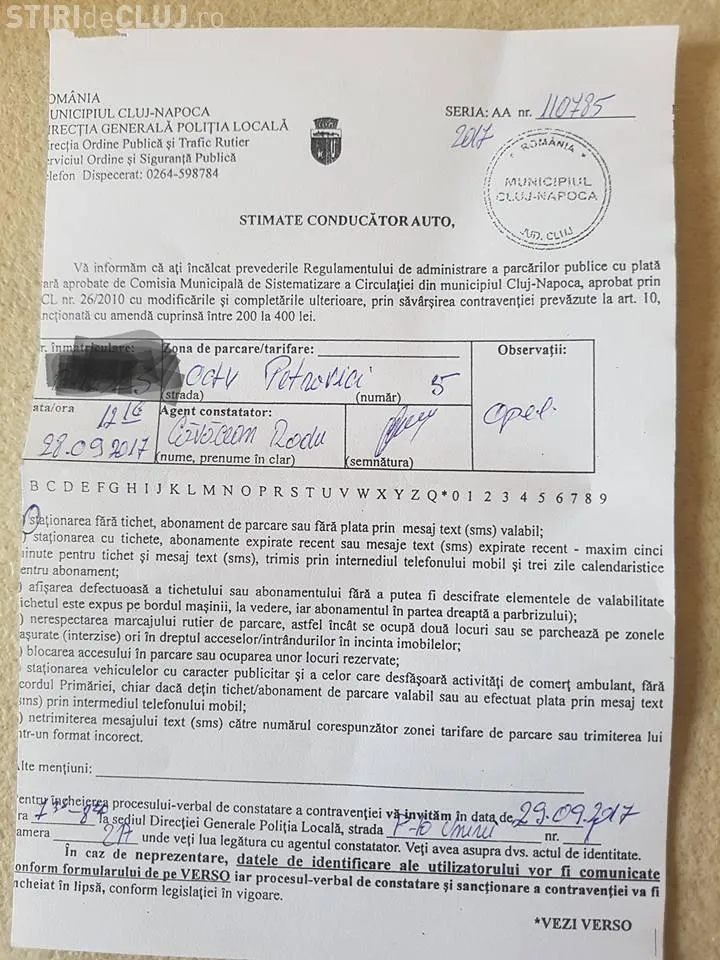 STIRIdeCLUJ.ro
OMÂNIA
UNICIPIUL CLUJ-NAPOCA
IRECȚIA GENERALĂ POLIȚIA LOCALĂ
irecția Ordine Publică și Trafic Rutier
erviciul Ordine și Siguranță Publică
elefon Dispecerat: 0264-598784
SERIA: AA nr. 110785
2017
* ROMÂNIA *
MUNICIPIUL
CLUJ-NAPOCA
JUD. CLUJ
STIMATE CONDUCĂTOR AUTO,
Vă informăm că ați încălcat prevederile Regulamentului de administrare a parcărilor publice cu plată
ară aprobate de Comisia Municipală de Sistematizare a Circulației din municipiul Cluj-Napoca, aprobat prin
CL nr. 26/2010 cu modificările și completările ulterioare, prin săvârșirea contravenției prevăzute la art. 10,
ncționată cu amendă cuprinsă între 200 la 400 lei.
r. înmatriculare: Zona de parcare/tarifare: Observații:
Octv Petrovici 5 Opel
(strada) (număr)
ata/ora 12 Agent constatator:
28.09.2017 Radu
(nume, prenume în clar) (semnătura)
B C D E F G H I J K L M N O P R S T U V W X Y Z Q * 0 1 2 3 4 5 6 7 8 9
staționarea fără tichet, abonament de parcare sau fără plata prin mesaj text (sms) valabil;
staționarea cu tichete, abonamente expirate recent sau mesaje text (sms) expirate recent - maxim cinci
inute pentru tichet și mesaj text (sms), trimis prin internediul telefonului mobil și trei zile calendaristice
entru abonament;
) afișarea defectuoasă a tichetului sau abonamentului fără a putea fi descifrate elementele de valabilitate
ichetul este expus pe bordul mașinii, la vedere, iar abonamentul în partea dreaptă a parbrizului);
) nerespectarea marcajului rutier de parcare, astfel încât se ocupă două locuri sau se parchează pe zonele
așurate (interzise) ori în dreptul acceselor/intrândurilor în incinta imobilelor;
) blocarea accesului în parcare sau ocuparea unor locuri rezervate;
) staționarea vehiculelor cu caracter publicitar și a celor care desfășoară activități de comerț ambulant, fără
cordul Primăriei, chiar dacă dețin tichet/abonament de parcare valabil sau au efectuat plata prin mesaj text
sms) prin intermediul telefonului mobil;
) netrimiterea mesajului text (sms) către numărul corespunzător zonei tarifare de parcare sau trimiterea lui
ntr-un format incorect.
Alte mențiuni:
entru încheierea procesului-verbal de constatare a contravenției vă invităm în data de 29.09.2017
ra la sediul Direcției Generale Poliția Locală, strada P-ța Unirii nr.
amera unde veți lua legătura cu agentul constatator. Veți avea asupra dvs. actul de identitate.
În caz de neprezentare, datele de identificare ale utilizatorului vor fi comunicate
onform formularului de pe VERSO iar procesul-verbal de constatare și sancționare a contravenției va fi
ncheiat în lipsă, conform legislației în vigoare.
*VEZI VERSO